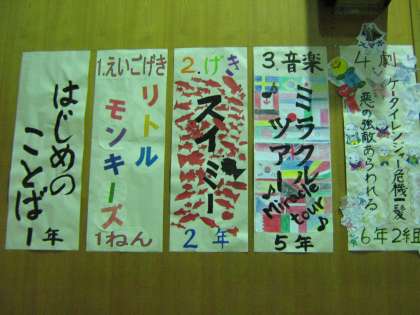 はじめの
ことばー
年
1.えいごげき
リトル
モンキーズ
1ねん
2.げき
スイミー
2年
3.音楽
ミラクル
ツアー
Miracle
tour
5年
4.劇
ケータイレンジャー危機一髪
悪の強敵あらわれる
6年2組